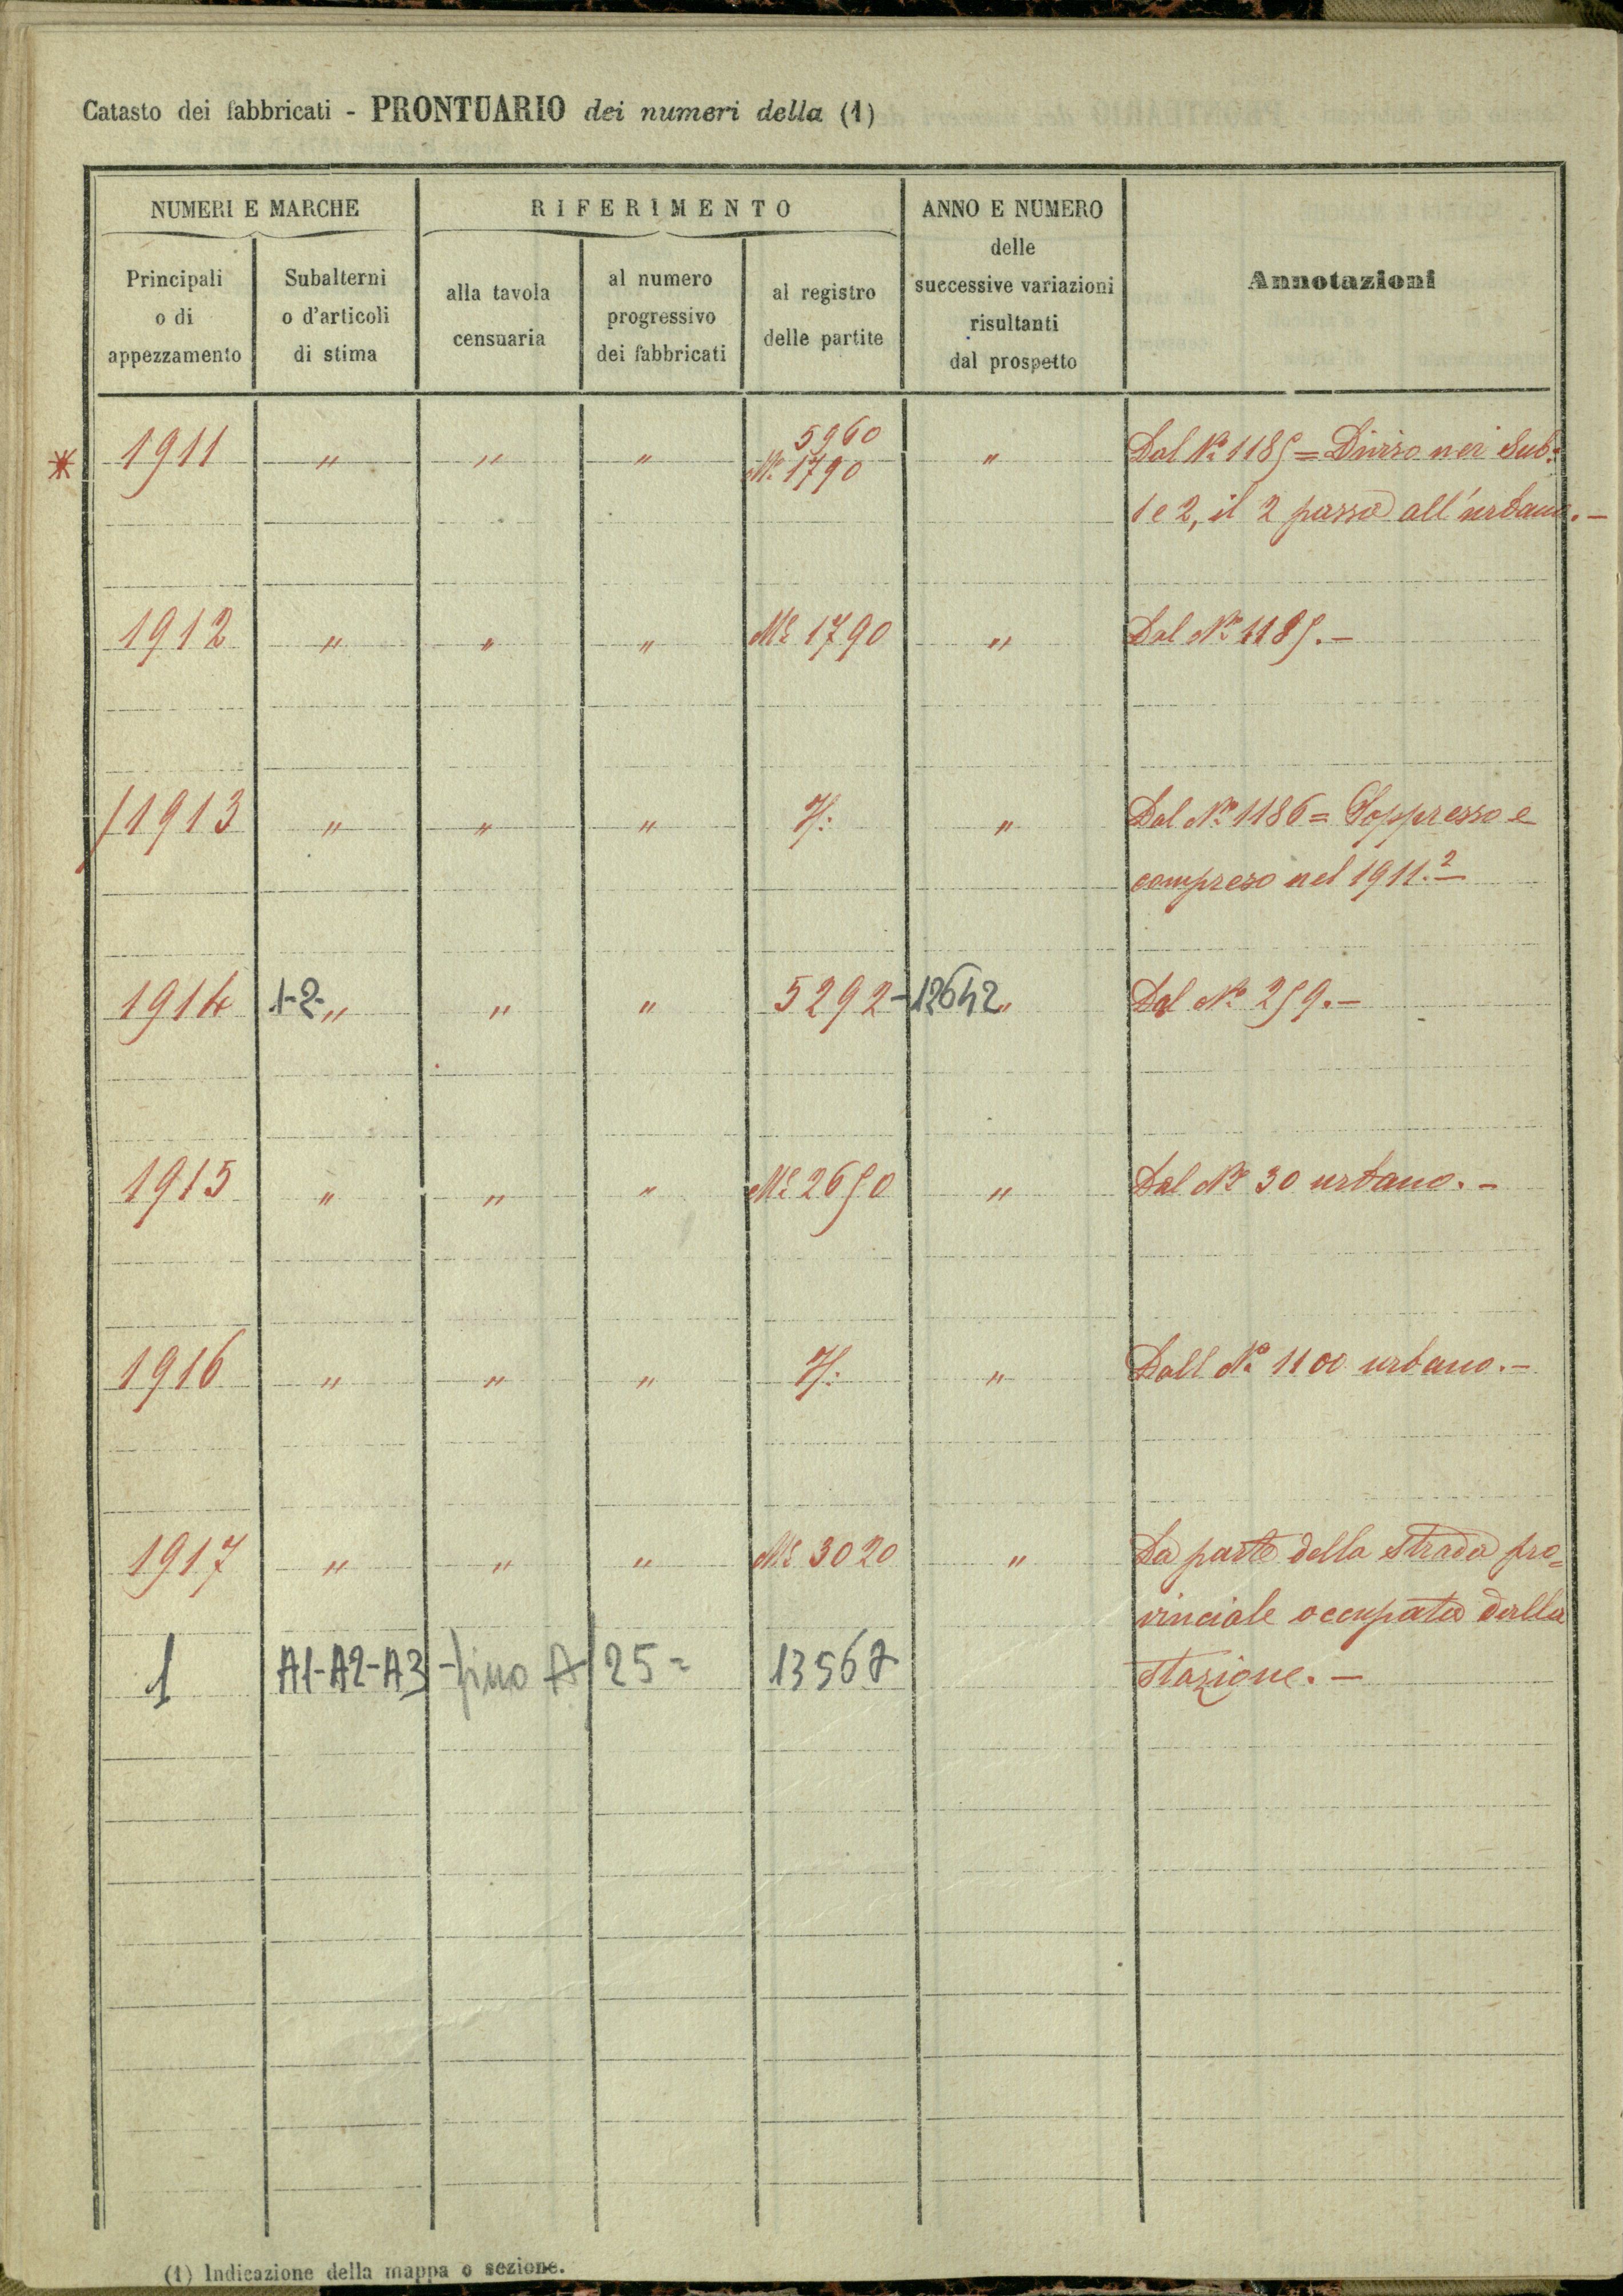 Catasto dei fabbricati - PRONTUARIO dei numeri della (1)
NUMERI E MARCHE
RIFERIMENTO
ANNO E NUMERO
delle
successive variazioni
risultanti
dal prospetto
Annotazioni
Principali
o di
appezzamento
Subalterni
o d'articoli
di stima
alla tavola
censuaria
al numero
progressivo
dei fabbricati
al registro
delle partite
5960
* 1911 " " " Mo. 1790 " Dal No. 1185 = Diviso nei Sub.
1 e 2, il 2 passa all'urbano. -
1912 " " " Mo. 1790 " Dal No. 1185. -
/1913 " " " " Dal No. 1186 = Soppresso e
compreso nel 1911.2 -
1914 1-2- " " " 5292 - 12642 " Dal No. 259. -
1915 " " " Mo. 2650 " Dal No. 30 urbano. -
1916 " " " " Dall No. 1100 urbano. -
1917 " " " Mo. 3020 " Da parte della strada pro=
vinciale occupata dalla
1 A1-A2-A3 - fino A 25 = 13567 stazione. -
(1) Indicazione della mappa o sezione.